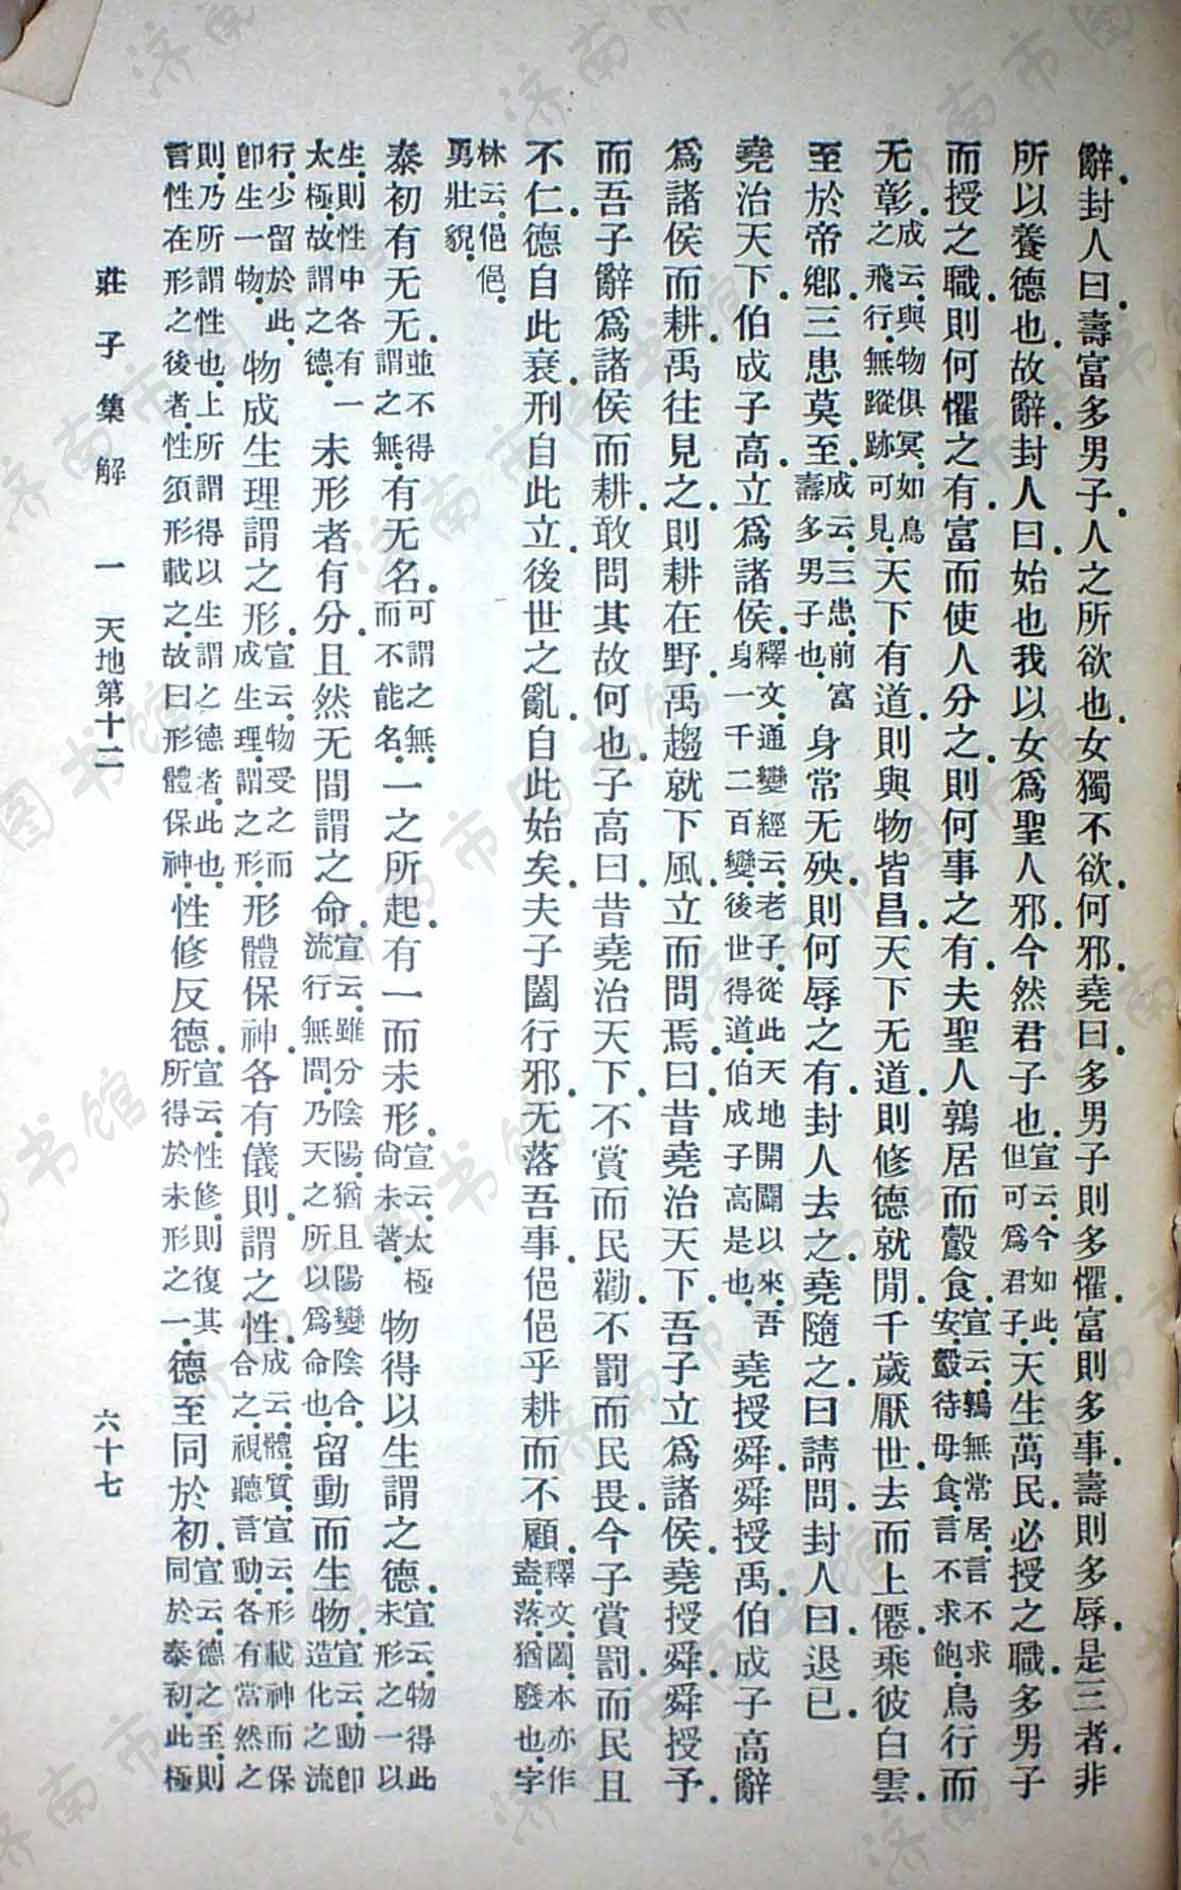 辭.封人曰.壽富多男子.人之所欲也.女獨不欲.何邪.堯曰.多男子則多懼.富則多事.壽則多辱.是三者.非
所以養德也.故辭.封人曰.始也我以女爲聖人邪.今然君子也.宣云.今如此.但可爲君子.天生萬民.必授之職.多男子
而授之職.則何懼之有.富而使人分之.則何事之有.夫聖人鶉居而鷇食.宣云.鶉無常居.言不求安.鷇待母食.言不求飽.鳥行而
无彰.成云.與物俱冥.如鳥之飛行.無蹤跡可見.天下有道.則與物皆昌.天下无道.則修德就閒.千歲厭世.去而上僊.乘彼白雲.
至於帝鄉.三患莫至.成云.三患.前富壽多男子也.身常无殃.則何辱之有.封人去之.堯隨之曰.請問.封人曰.退已.
堯治天下.伯成子高.立爲諸侯.釋文.通變經云.老子從此天地開闢以來.吾身一千二百變.後世得道.伯成子高是也.堯授舜.舜授禹.伯成子高辭
爲諸侯而耕.禹往見之.則耕在野.禹趨就下風.立而問焉.曰.昔堯治天下.吾子立爲諸侯.堯授舜.舜授予.
而吾子辭爲諸侯而耕.敢問其故何也.子高曰.昔堯治天下.不賞而民勸.不罰而民畏.今子賞罰.而民且
不仁.德自此衰.刑自此立.後世之亂.自此始矣.夫子闔行邪.无落吾事.俋俋乎耕而不顧.釋文.闔.本亦作盍.落.猶廢也.字
林云.俋俋.勇壯貌.
泰初有无无.並不得謂之無.有无名.可謂之無.而不能名.一之所起.有一而未形.宣云.太極尙未著.物得以生謂之德.宣云.物得此未形之一以
生.則性中各有一太極.故謂之德.未形者有分.且然无間謂之命.宣云.雖分陰陽.猶且陽變陰合.流行無間.乃天之所以爲命也.留動而生物.宣云.動卽造化之流
行.少留於此.卽生一物.物成生理謂之形.宣云.物受之而成生理.謂之形.形體保神.各有儀則.謂之性.成云.體.質.宣云.形載神而保合之.視聽言動.各有當然之
則.乃所謂性也.上所謂得以生謂之德者.此也.言性在形之後者.性須形載之.故曰形體保神.性修反德.宣云.性修.則復其所得於未形之一.德至同於初.宣云.德之至.則同於泰初.此極
莊子集解 一 天地第十二 六十七
济南市图书馆